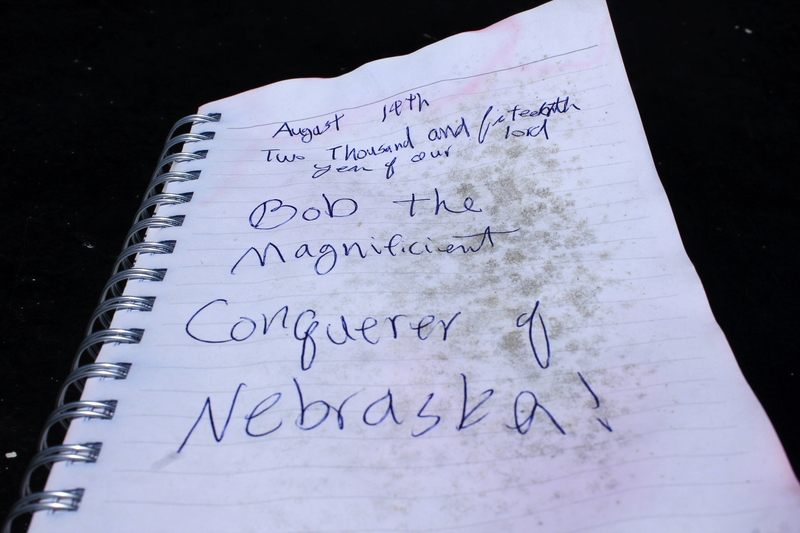 August 14th
Two Thousand and fifteenth
year of our lord
Bob the
Magnificient
Conquerer of
Nebraska!